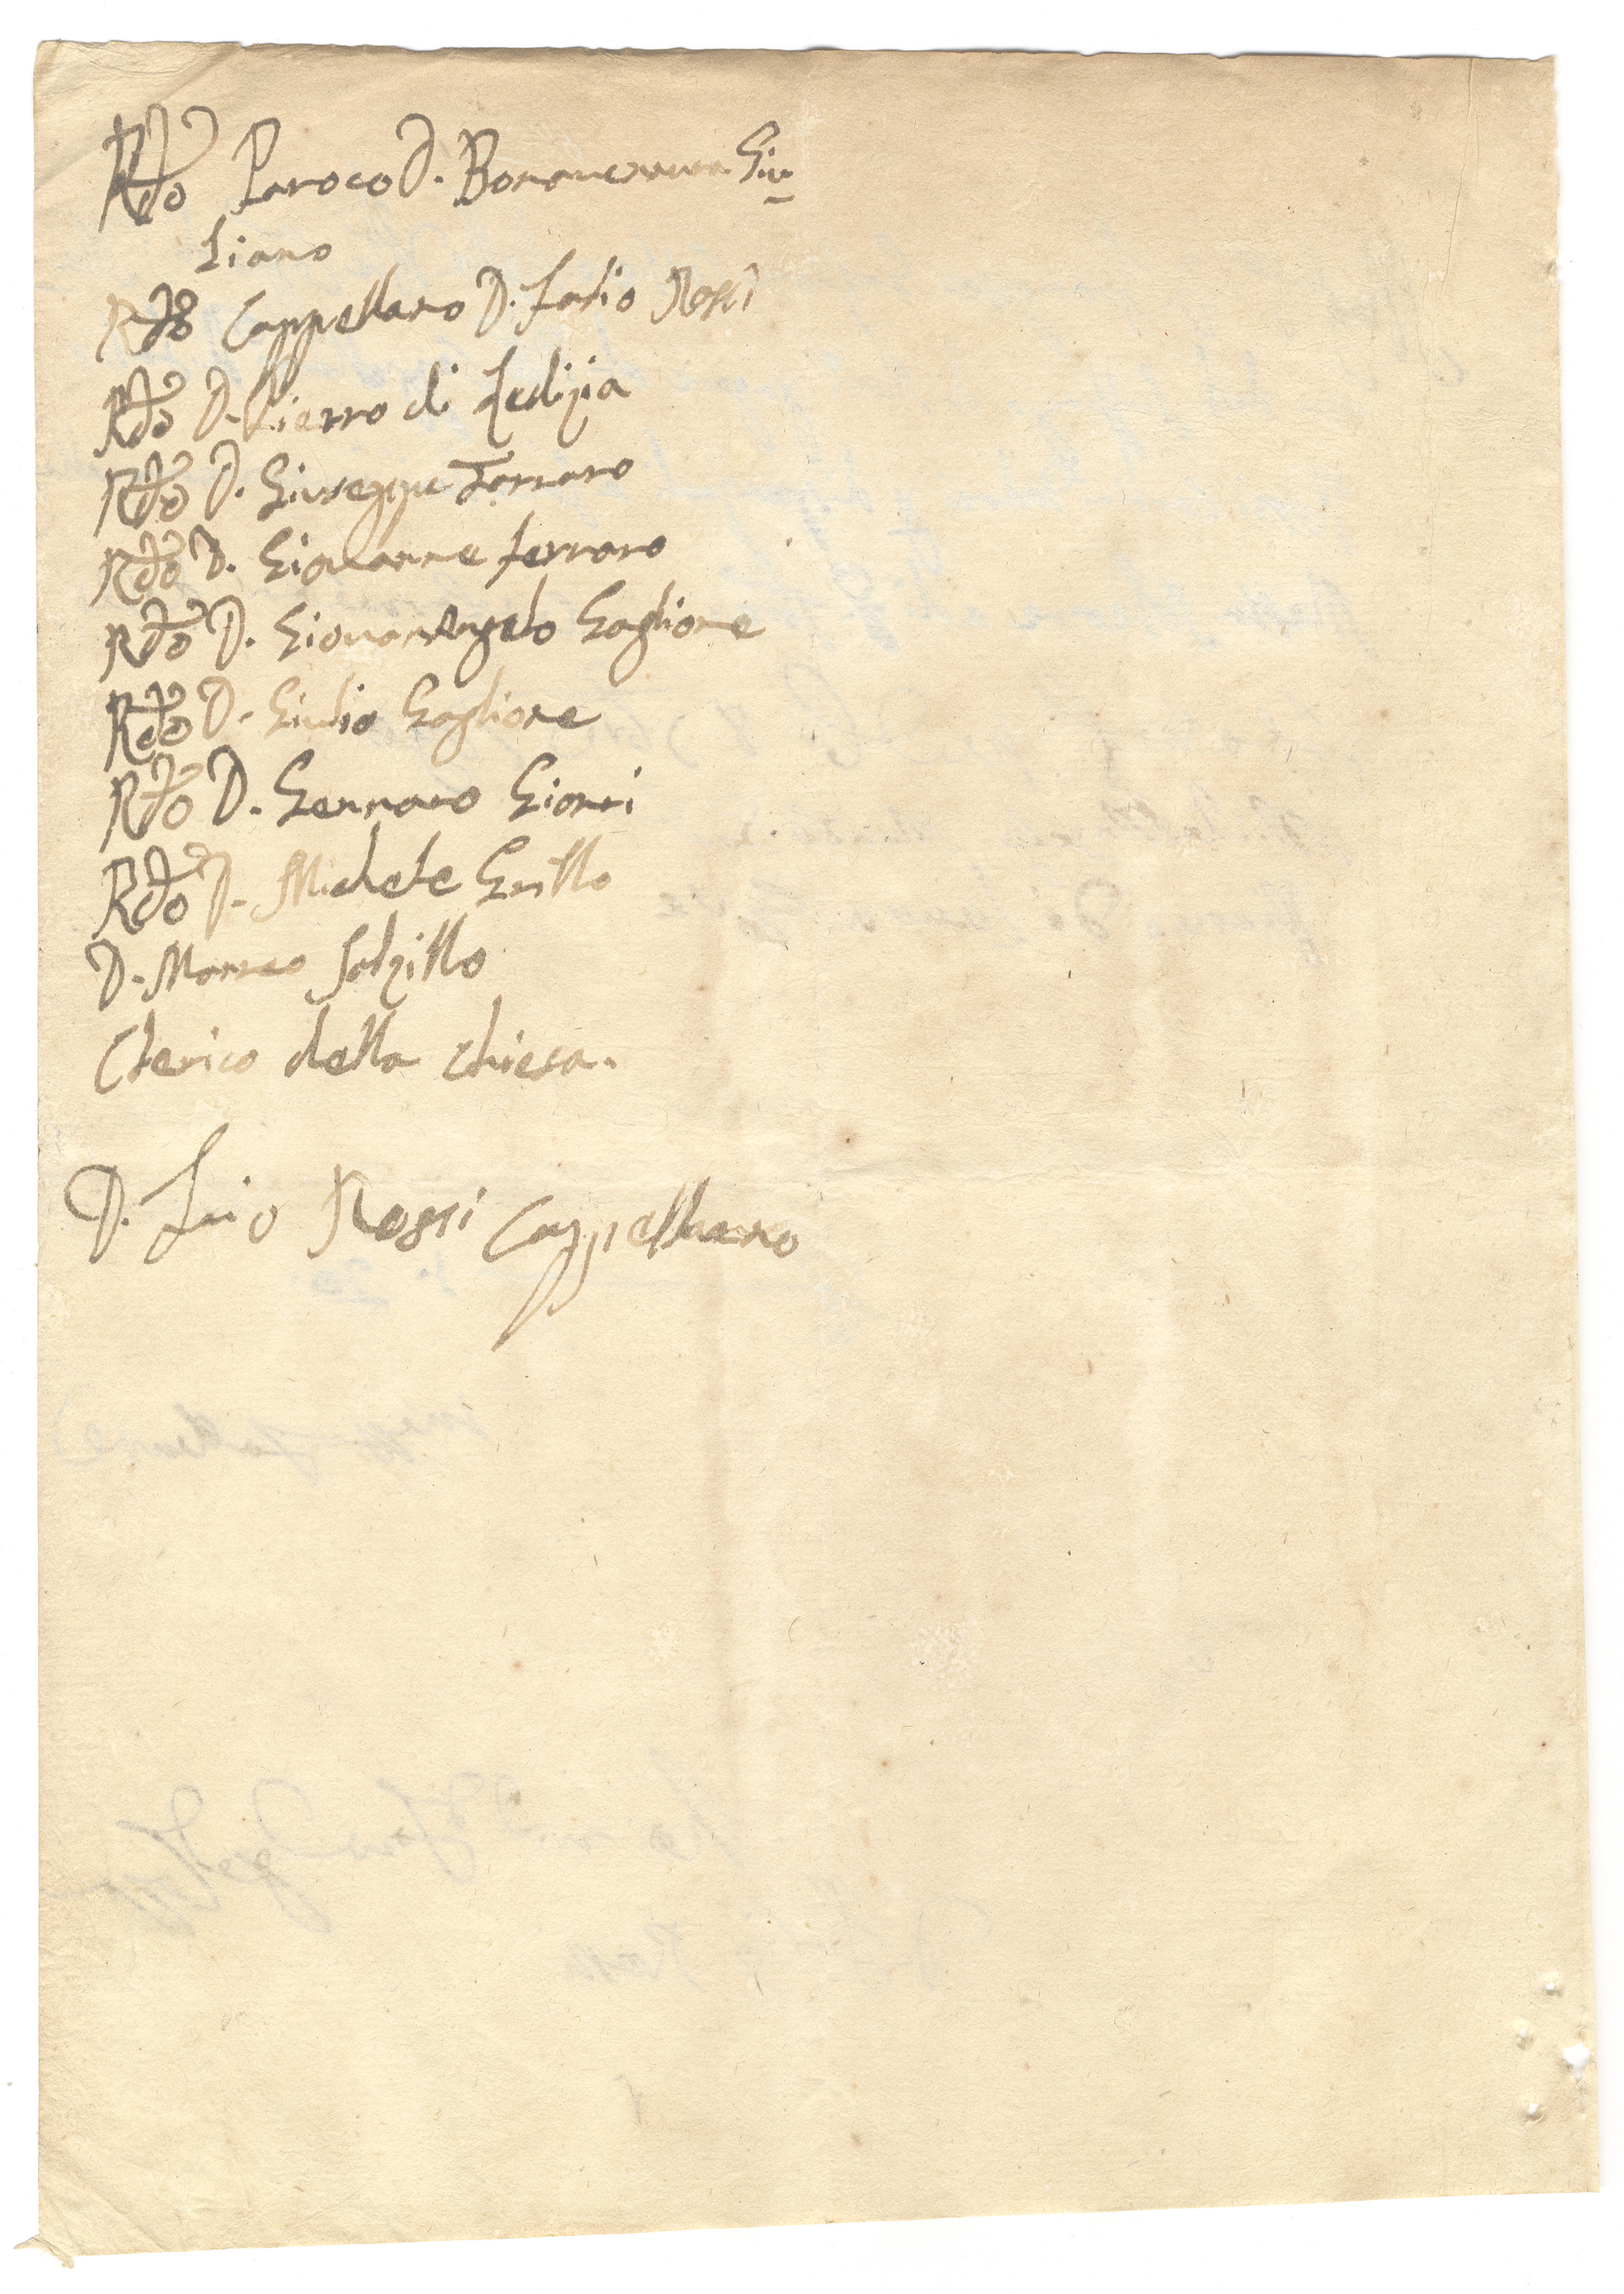 Rdo Paroco D. Bonaventura Giu
liano
Rdo Cappellano D. Fatio Rossi
Rdo D. Pietro di Letizia
Rdo D. Giuseppe Ferraro
Rdo D. Giovanne ferraro
Rdo D. Giovanangelo Gaglione
Rdo D. Giulio Gaglione
Rdo D. Gennaro
Rdo D. Michele Grillo
D. Matteo Salzillo
Clerico della chiesa.
D. Rossi Cappellano